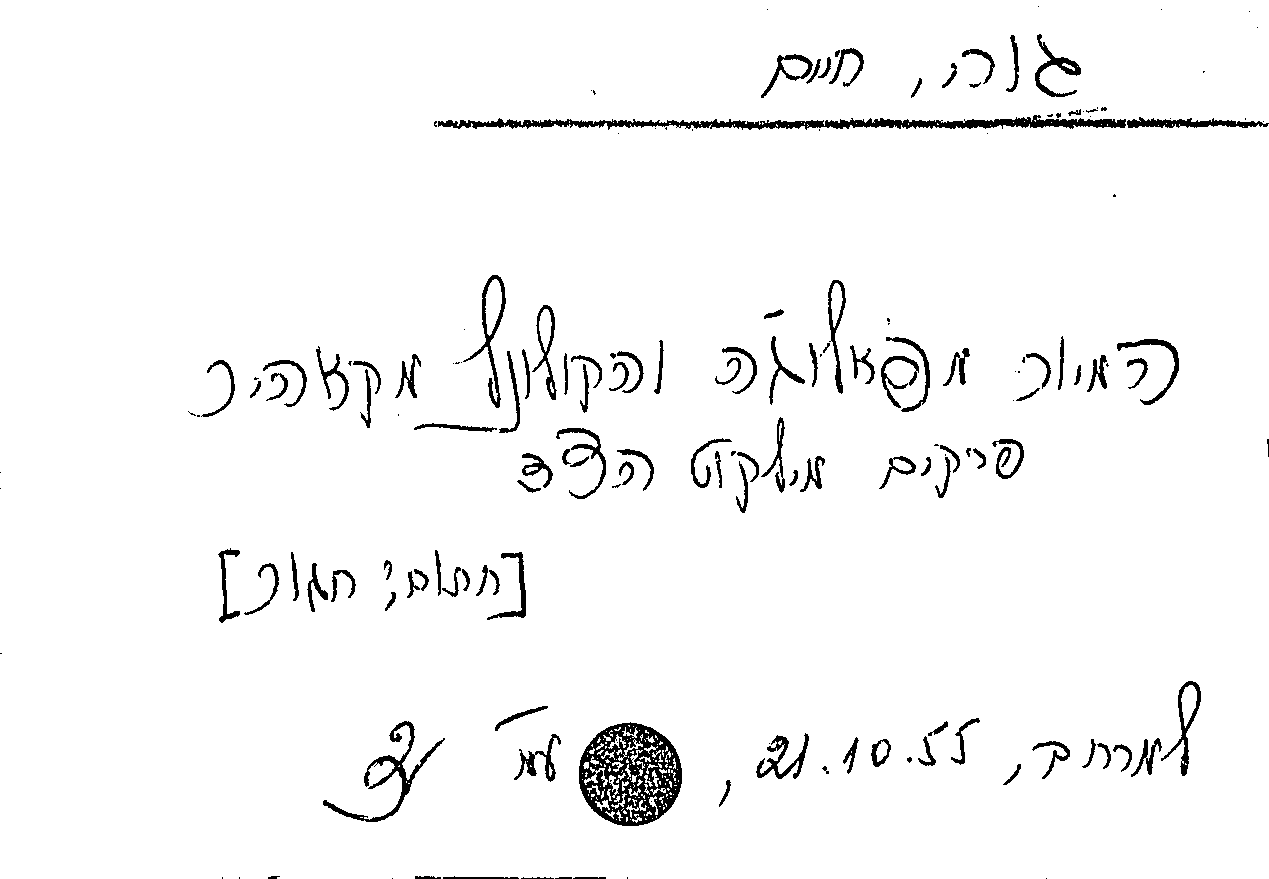 גורי, חיים
המיור מפאלוג'ה והקולונל מקאהיר
פרקים מילקוט הצד
[חתום: חגור]
למרחב, 21.10.55, עמ'